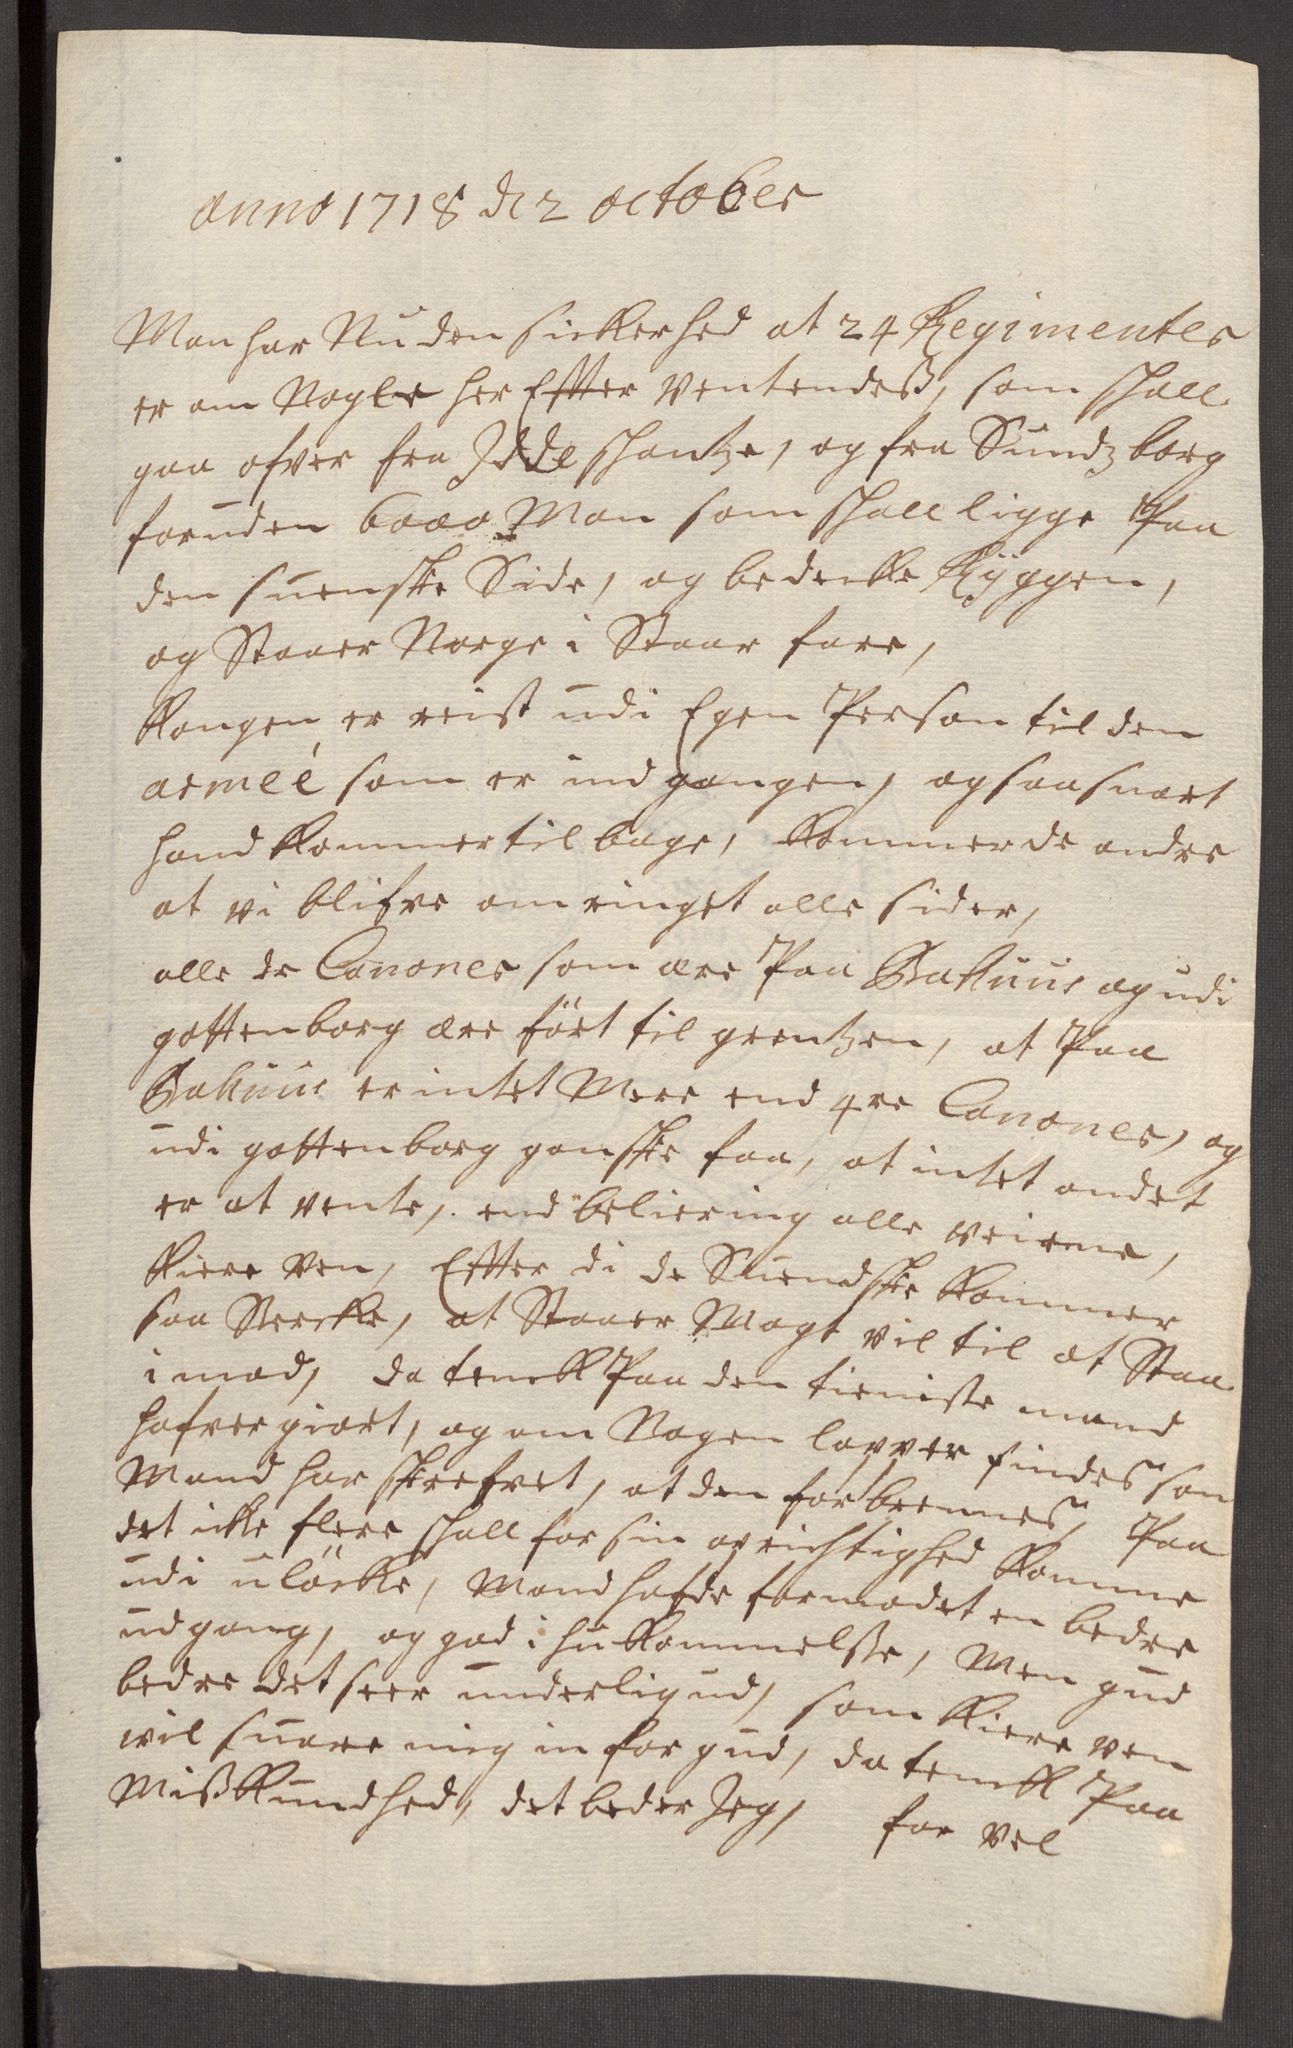 anno 1718 de 2 october
Man har Nu den sickerhed at 24 Regimenter
er om Nogle her Efter Ventendeß, som skall
gaa ofver fra Idde skantze, og fra Sundzborg
foruden 6000 Man som skall ligge Paa
den suenske Side, og bedecke Ryggen,
og Staaer Norge i Staar fare,
Kongen er reist udi Egen Person til den
armeé som er ind gangen, og saa snart
hand Kommer til bage, Kommer de andre
at vi blifve omringet alle sider,
alle de Canoner som ære Paa Bahuus og udi
gottenborg ære fört til grentzen, at Paa
Bahuus er intet Mere end 4re Canoner, og
udi gottenborg ganske faa, at intet andet
er at vente, end beliering alle veiene,
Kiere Ven, Efter di de Suendske Kommer
saa Sterke, at Staaer Magt vil til at Staa
imod, da tenck Paa den tieniste mand
hafver giort, og om Nogen lapper findes som
Mand har skrefvet, at den forbrennes, Paa
det icke flere skall for sin oprichtighed Komme
udi ulöcke, Mand hafde formodet en bedre
udgang, og god ihukommelsse, Men gud
bedre det seer underlig ud, som Kiere ven
vil suare mig in for gud, da tenck Paa
Mißkundhed, det beder Jeg, far vel